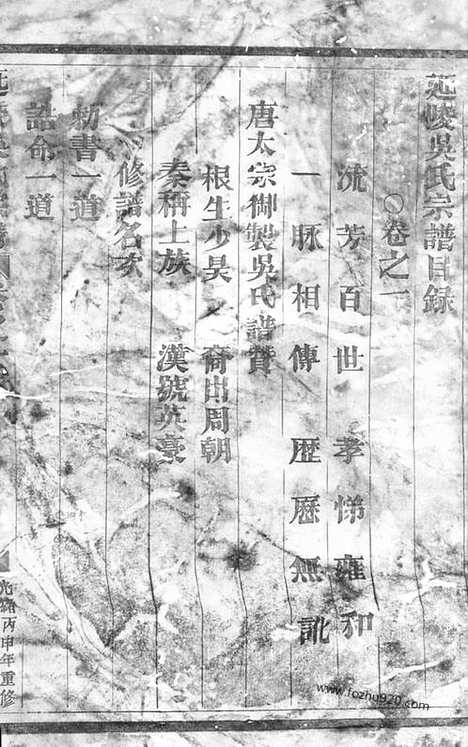 延陵吳氏宗譜目録
〇卷之一
流芳百世孝悌雍和
一脉相傳歷歷無訛
唐太宗御製吳氏譜贊
根生少昊 裔出周朝
秦稱上族 漢號英豪
修譜名次
勅書一道
誥命一道
光緒丙申年重修
www.fozhu920.com